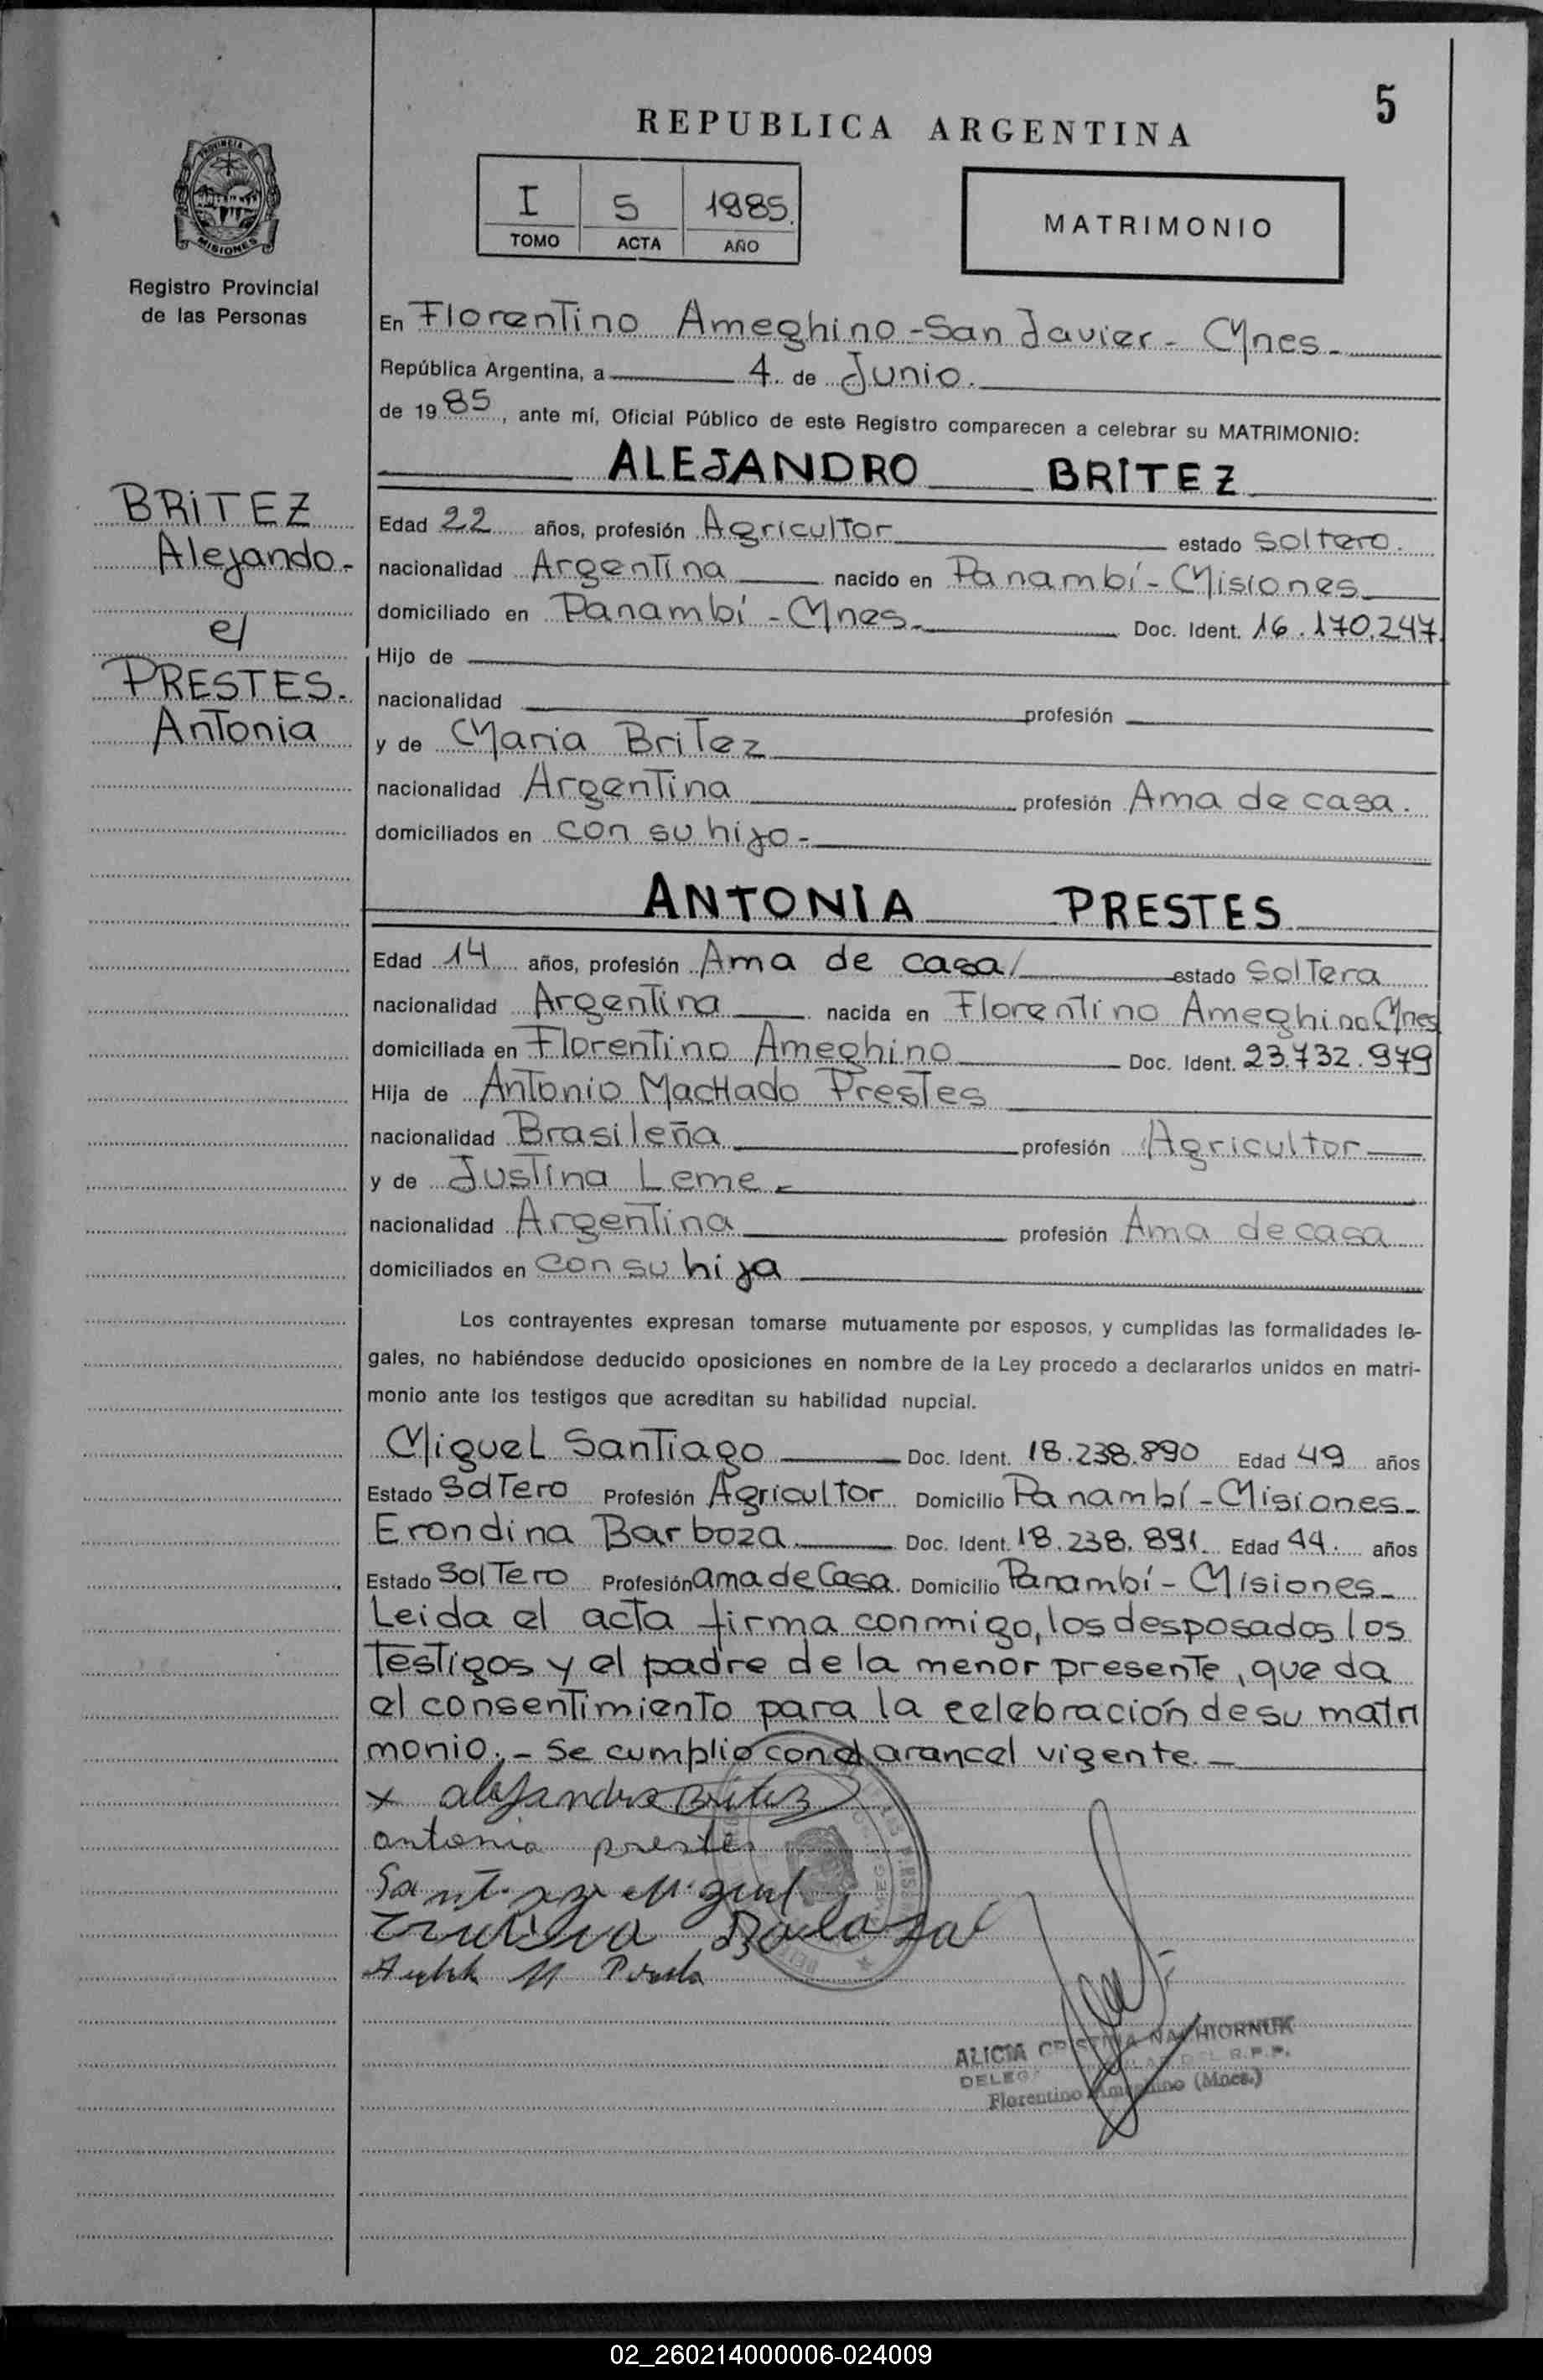 5
REPUBLICA ARGENTINA
I 5 1985.
TOMO ACTA AÑO
MATRIMONIO
PROVINCIA DE
MISIONES
Registro Provincial
de las Personas
En Florentino Ameghino - San Javier - Mnes.
República Argentina, a 4 de Junio.
de 1985, ante mí, Oficial Público de este Registro comparecen a celebrar su MATRIMONIO:
BRITEZ
Alejando.-
c/
PRESTES.
Antonia
ALEJANDRO BRITEZ
Edad 22 años, profesión Agricultor estado soltero.
nacionalidad Argentina nacido en Panambí - Misiones
domiciliado en Panambí - Mnes. Doc. Ident. 16.170.247.
Hijo de
nacionalidad profesión
y de Maria Britez
nacionalidad Argentina profesión Ama de casa.
domiciliados en con su hijo.-
ANTONIA PRESTES
Edad 14 años, profesión Ama de casa/ estado Soltera
nacionalidad Argentina nacida en Florentino Ameghino Mnes
domiciliada en Florentino Ameghino Doc. Ident. 23.732.979
Hija de Antonio Machado Prestes
nacionalidad Brasileña profesión Agricultor
y de Justina Leme.
nacionalidad Argentina profesión Ama de casa
domiciliados en con su hija
Los contrayentes expresan tomarse mutuamente por esposos, y cumplidas las formalidades le-
gales, no habiéndose deducido oposiciones en nombre de la Ley procedo a declararlos unidos en matri-
monio ante los testigos que acreditan su habilidad nupcial.
Miguel Santiago Doc. Ident. 18.238.890 Edad 49 años
Estado Soltero Profesión Agricultor Domicilio Panambí - Misiones.
Erondina Barboza Doc. Ident. 18.238.891. Edad 44. años
Estado Soltero Profesión ama de Casa. Domicilio Panambí - Misiones.
Leida el acta firma conmigo, los desposados los
Testigos y el padre de la menor presente, que da
el consentimiento para la celebración de su matri
monio.- Se cumplio con el arancel vigente.
x alejandro Britez
antonia prestes
Santiago Miguel
ALICIA CRISTINA
Florentino Ameghino (Mnes.)
02_260214000006-024009